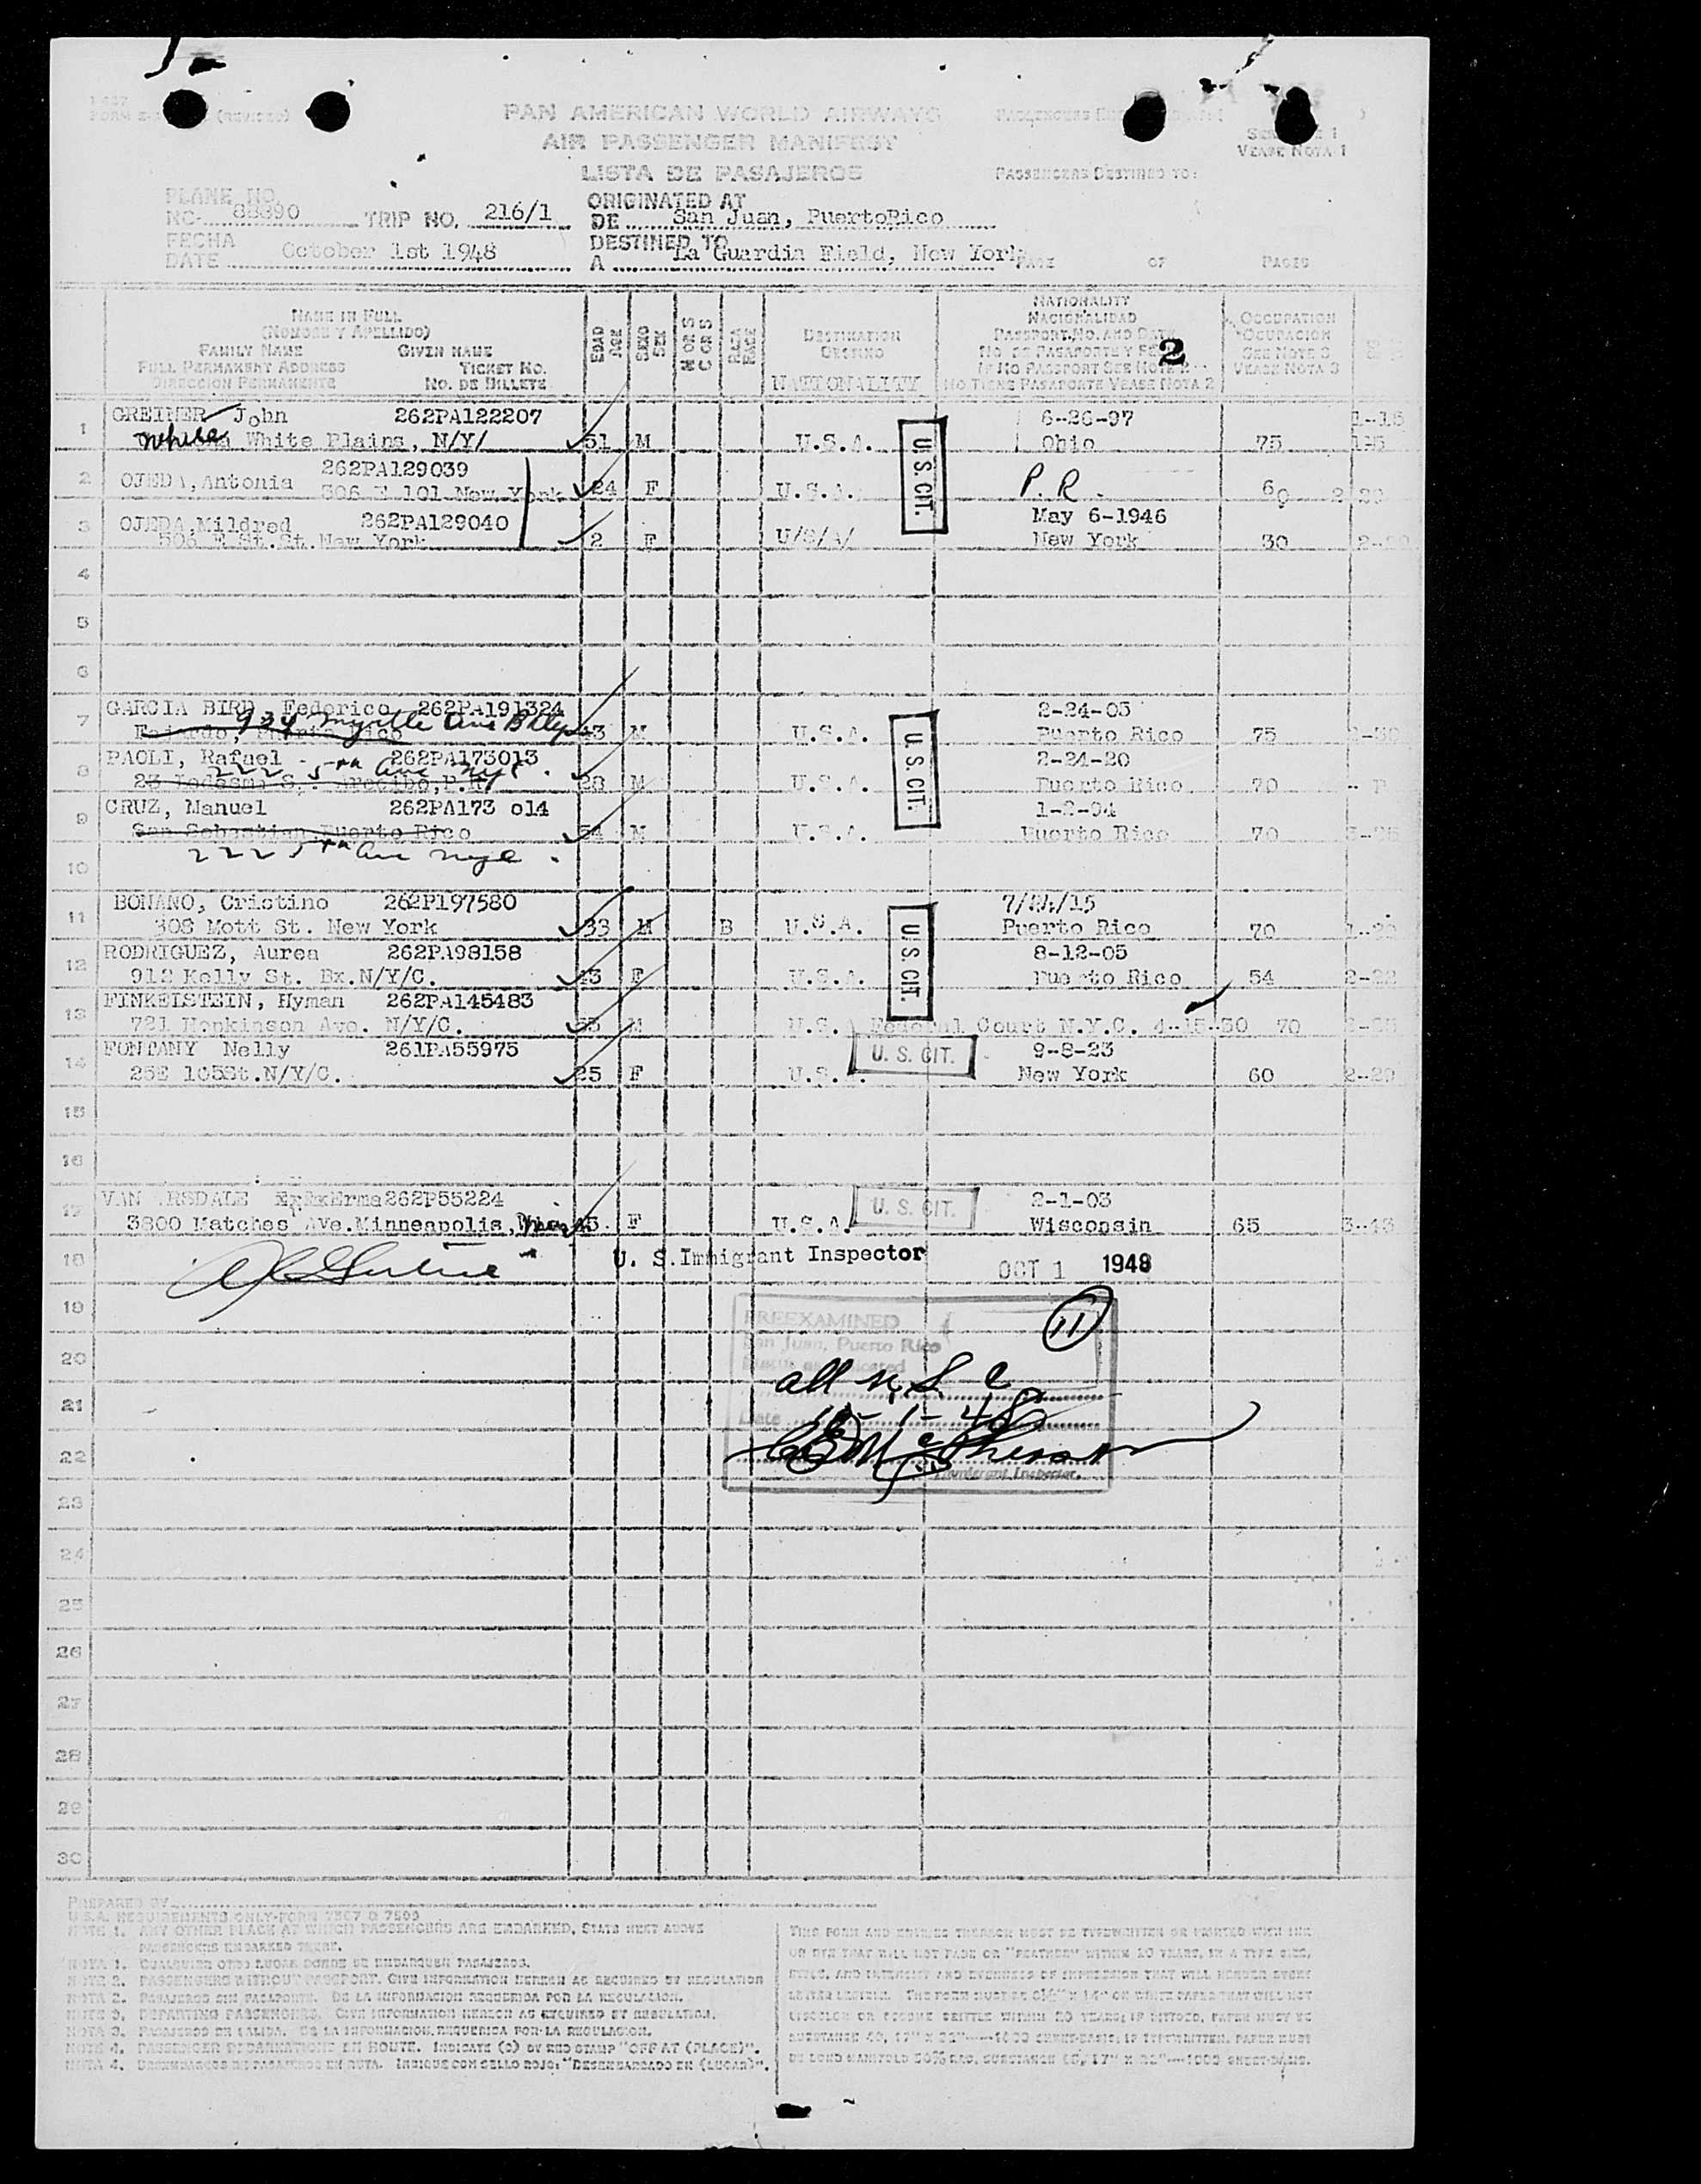 FORM (REVISED)
PAN AMERICAN WORLD AIRWAYS
AIR PASSENGER MANIFEST
LISTA DE PASAJEROS
VEASE NOTA 1
PASSENGERS DESTINED TO:
PLANE NO.
NC- 88890 TRIP NO. 216/1
ORIGINATED AT
DE San Juan, PuertoRico
FECHA
DATE October 1st 1948
DESTINED TO
A La Guardia Field, New York
PAGE OF PAGES
NAME IN FULL
(NOMBRE Y APELLIDO)
FAMILY NAME GIVEN NAME
FULL PERMANENT ADDRESS TICKET NO.
DIRECCION PERMANENTE NO. DE BILLETE
EDAD
AGE
SEXO
SEX
M OR S
C OR S
RAZA
RACE
DESTINATION
DESTINO
NATIONALITY
NATIONALITY
NACIONALIDAD
PASSPORT NO. AND DATE
NO. DE PASAPORTE Y
IF NO PASSPORT SEE NOTE 2
NO TIENE PASAPORTE VEASE NOTA 2
2
OCCUPATION
OCUPACION
SEE NOTE 3
VEASE NOTA 3
1 GREINER John 262PA122207 6-26-97
White Plains, N/Y/ 51 M U.S.A. Ohio 75
U.S.CIT.
2 OJEDA, Antonia 262PA129039
306 E 101 New York 24 F U.S.A. P.R. 60
3 OJEDA, Mildred 262PA129040 May 6-1946
506 E St.St.New York 2 F U/S/A/ New York 30
4
5
6
7 GARCIA BIRD, Federico 262PA191324 2-24-05
Fajardo, Puerto Rico 934 Myrtle Ave Bklyn 43 M U.S.A. Puerto Rico 75
U.S.CIT.
8 PAOLI, Rafael 262PA173013 2-24-20
222 5th Ave NYC.
23 Ledesma S,. Arecibo,P.R/ 28 M U.S.A. Puerto Rico 70
9 CRUZ, Manuel 262PA173 014 1-2-94
San Sebastian,Puerto Rico 54 M U.S.A. Puerto Rico 70
10 222 5th Ave nyc.
11 BONANO, Cristino 262P197580
308 Mott St. New York 33 M B U.S.A. Puerto Rico 70
U.S. CIT.
12 RODRIGUEZ, Aurea 262PA98158 8-12-05
912 Kelly St. Bx.N/Y/C. 43 F U.S.A. Puerto Rico 54
13 FINKELSTEIN, Hyman 262PA145483
721 Hopkinson Ave. N/Y/C. M U.S. Federal Court N.Y.C. 4-15-30 70
14 FONTANY Nelly 261PA55975 9-8-23
U. S. CIT.
25E 105St.N/Y/C. 25 F U.S.A. New York 60
15
16
17 VAN ARSDALE Erma 262P55224 2-1-03
U. S. CIT.
3800 Natches AVe.Minneapolis, Minn 45 F U.S.A. Wisconsin 65
18 U. S.Immigrant Inspector OCT 1 1948
19
PREEXAMINED
San Juan, Puerto Rico
11
20
all U.S.C
21
Date 10-1-48
22
CE McPherson
Immigrant Inspector.
23
24
25
26
27
28
29
30
PREPARED BY
U.S.A. REQUIREMENTS ONLY-FORM 7507 & 7509
NOTE 1. ANY OTHER PLACE AT WHICH PASSENGERS ARE EMBARKED, STATE NEXT ABOVE
PASSENGERS EMBARKED THERE.
NOTA 1. CUALQUIER OTRO LUGAR DONDE SE EMBARQUEN PASAJEROS.
NOTE 2. PASSENGERS WITHOUT PASSPORT. GIVE INFORMATION HEREON AS REQUIRED BY REGULATION
NOTA 2. PASAJEROS SIN PASAPORTE. DE LA INFORMACION REQUERIDA POR LA REGULACION.
NOTE 3. DEPARTING PASSENGERS. GIVE INFORMATION HEREON AS REQUIRED BY REGULATION.
NOTA 3. PASAJEROS DE SALIDA. DE LA INFORMACION REQUERIDA POR LA REGULACION.
NOTE 4. PASSENGER DEBARKATIONS EN ROUTE. INDICATE (O) BY RED STAMP "OFF AT (PLACE)".
NOTA 4. DESEMBARCOS DE PASAJEROS EN RUTA. INDIQUE CON SELLO ROJO: "DESEMBARCADO EN (LUGAR)".
THIS FORM AND ENTRIES THEREON MUST BE TYPEWRITTEN OR PRINTED WITH INK
OR DYE THAT WILL NOT FADE OR "FEATHER" WITHIN 20 YEARS, IN A TYPE SIZE,
STYLE, AND INTENSITY AND EVENNESS OF IMPRESSION THAT WILL RENDER EVERY
LETTER LEGIBLE. THE FORM MUST BE 8½" X 14" ON WHITE PAPER THAT WILL NOT
DISCOLOR OR BECOME BRITTLE WITHIN 20 YEARS; IF DITTOED, PAPER MUST BE
SUBSTANCE 40, 17" X 22"—1000 SHEET-BASIS; IF TYPEWRITTEN, PAPER MUST
BE BOND MANIFOLD 50% RAG, SUBSTANCE 16, 17" X 22"—1000 SHEET-BASIS.